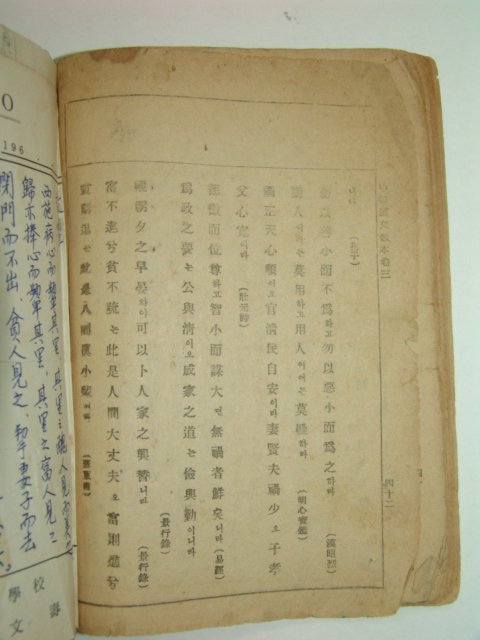 四十二
니라 (孔子)
勿以善小而不爲하고 勿以惡小而爲之하라 (漢昭烈)
疑人이어든 莫用하고 用人이어든 莫疑하라 (明心寶鑑)
國正天心順이오 官淸民自安이라 妻賢夫禍少오 子孝
父心寬이라 (壯元詩)
德微而位尊하고 智小而謀大면 無禍者鮮矣니라 (易經)
爲政之要는 公與淸이오 成家之道는 儉與勤이니라 (景行錄)
觀朝夕之早晏하야 可以卜人家之興替니라 (景行錄)
富不進兮貧不疏는 此是人間大丈夫오 富則進兮
196
西施病心而矉其里, 其里之醜人見而美之
歸亦捧心而矉其里, 其里之富人見之
閉門而不出, 貧人見之, 挈妻子而去